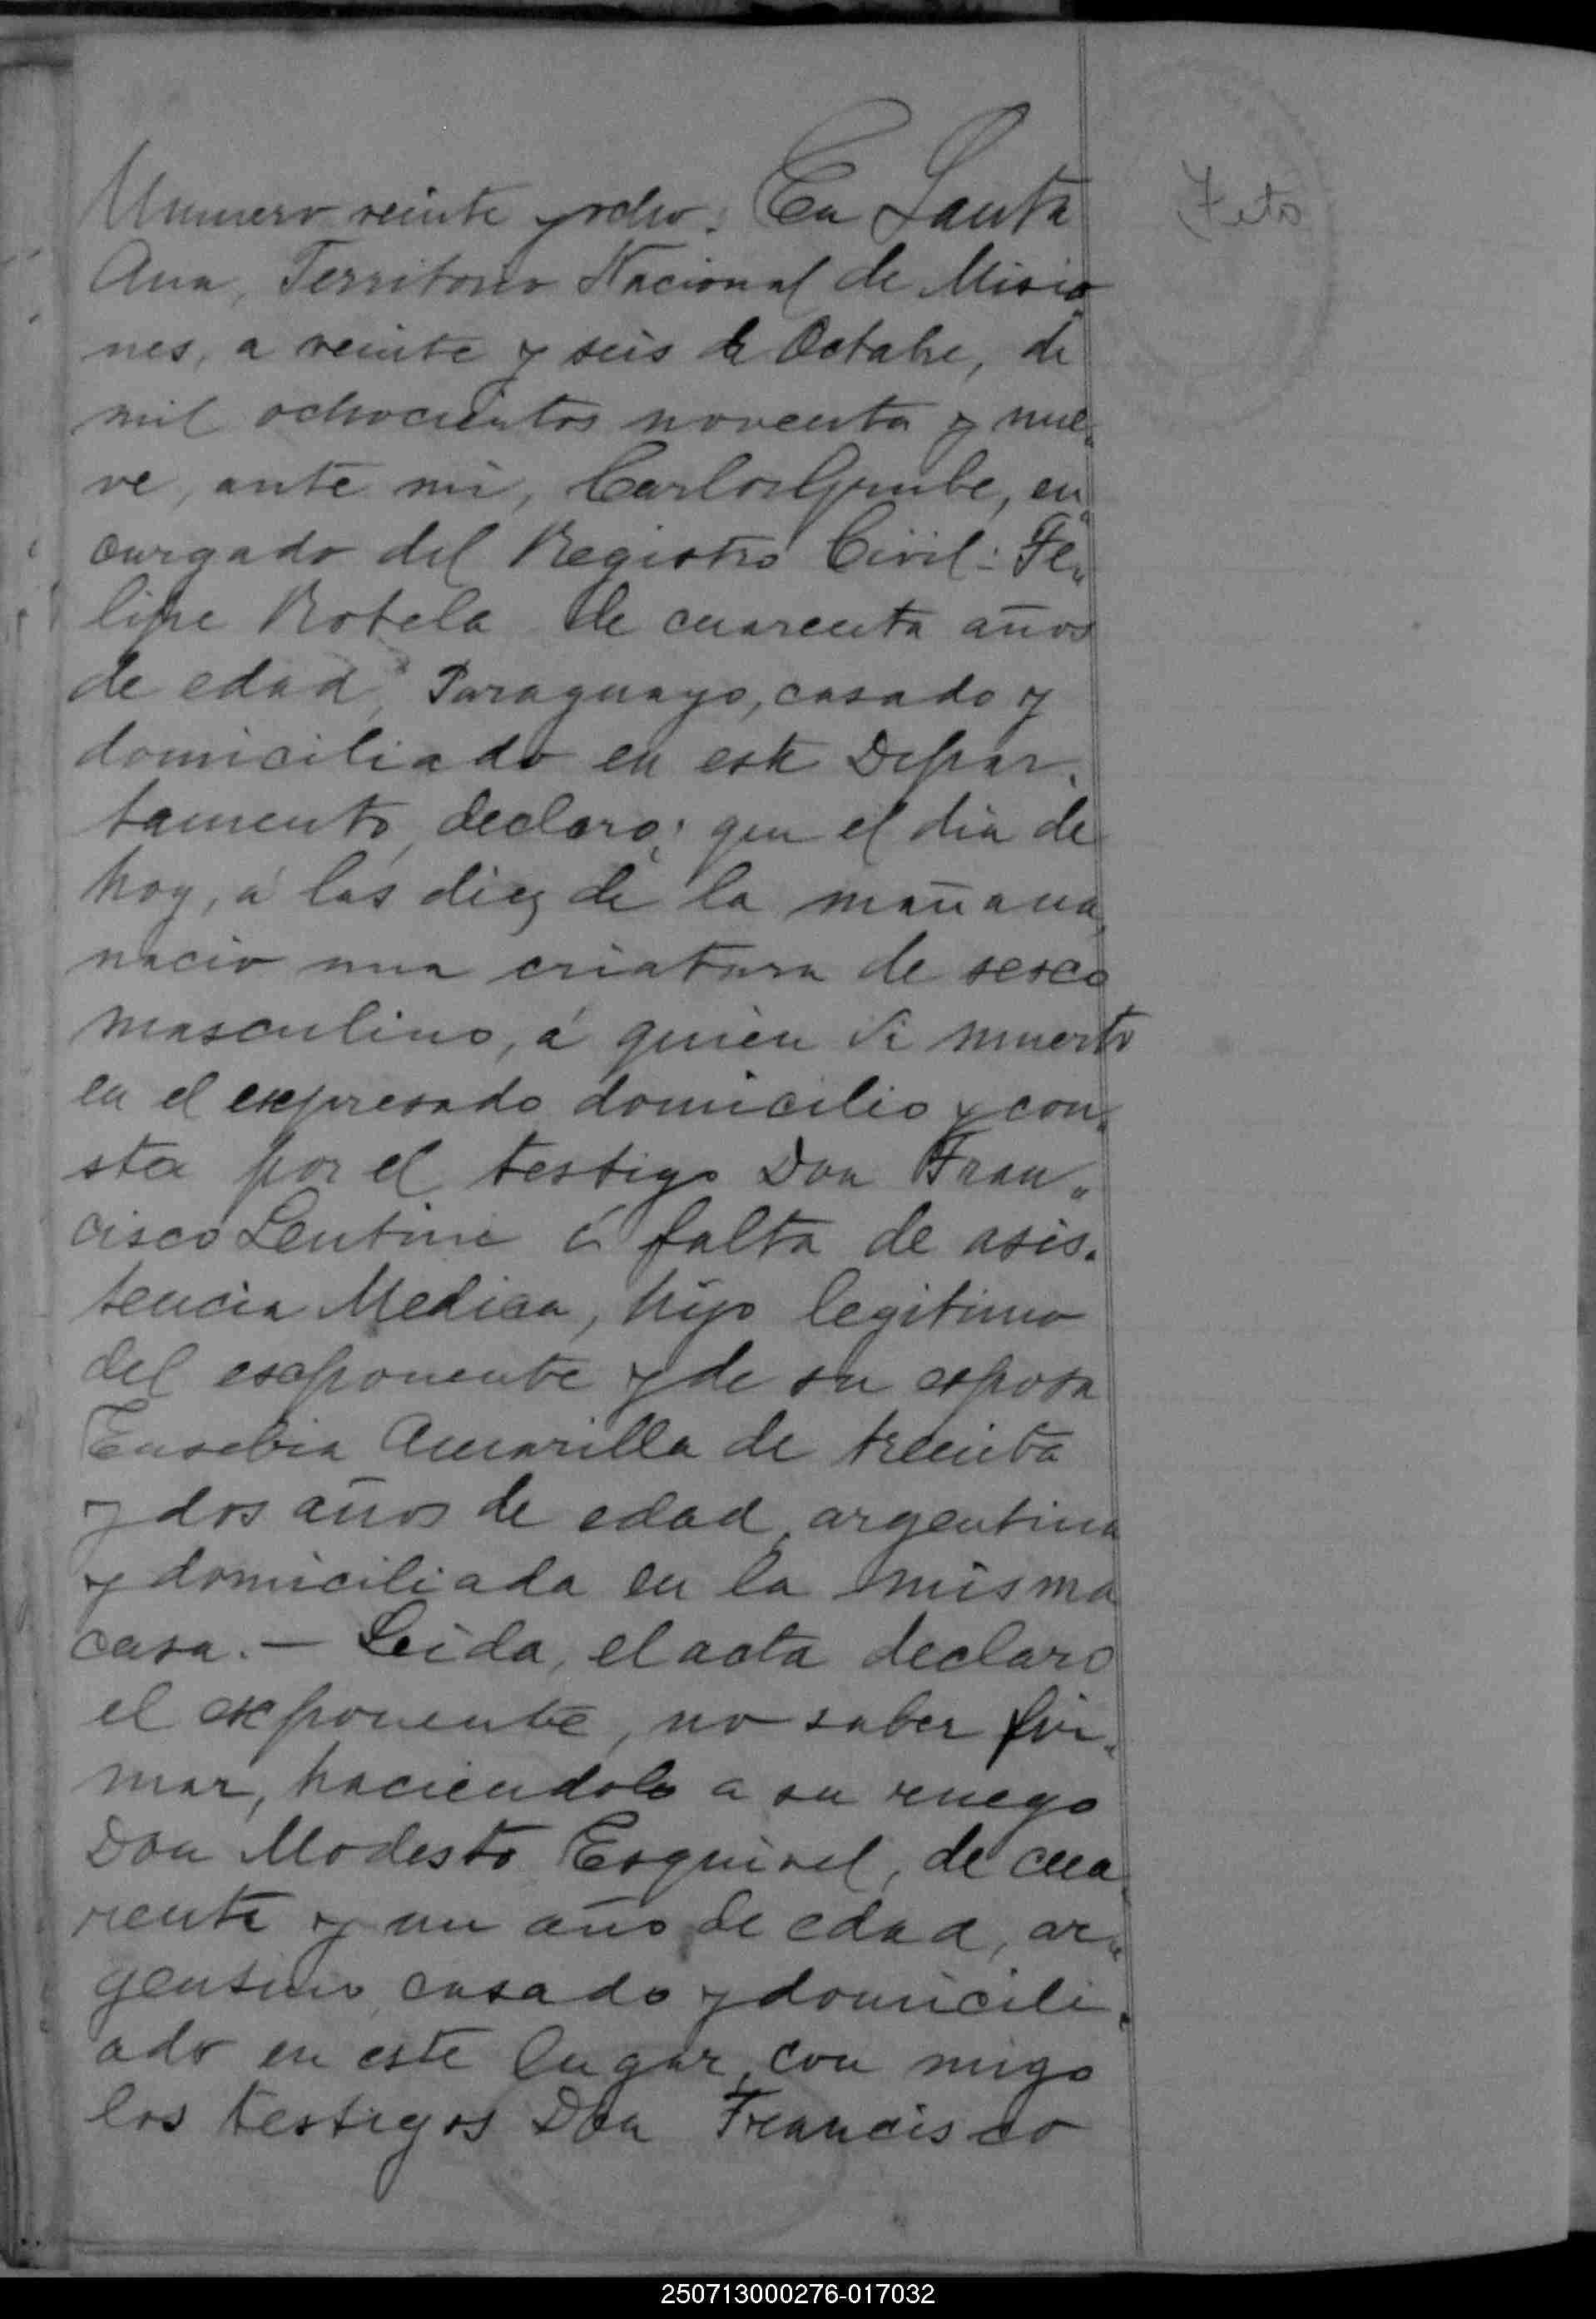 Numero veinte y ocho: En Santa
Ana, Territorio Nacional de Misio
nes, a veinte y seis de Octubre, de
mil ochocientos noventa y nue„
ve, ante mi, Carlos Grube, en„
cargado del Registro Civil: Fe„
lipe Rotela de cuarenta años
de edad, Paraguayo, casado y
domiciliado en este Depar„
tamento, declaro; que el dia de
hoy, á las diez de la mañana,
nacio una criatura de sexco
masculino, á quien vi muerto
en el expresado domicilio y con„
sta por el testigo Don Fran„
cisco Lentini á falta de asis„
tencia Medica, hijo legitimo
del exponente y de su esposa
Eusebia Amarilla de treinta
y dos años de edad, argentina
y domiciliada en la misma
casa. — Leida, el acta declaro
el exponente, no saber fir„
mar, haciendolo a su ruego
Don Modesto Esquivel, de cua„
renta y un año de edad, ar„
gentino, casado y domicili„
ado en este lugar, con migo
los testigos Don Francisco
Feto
250713000276-017032